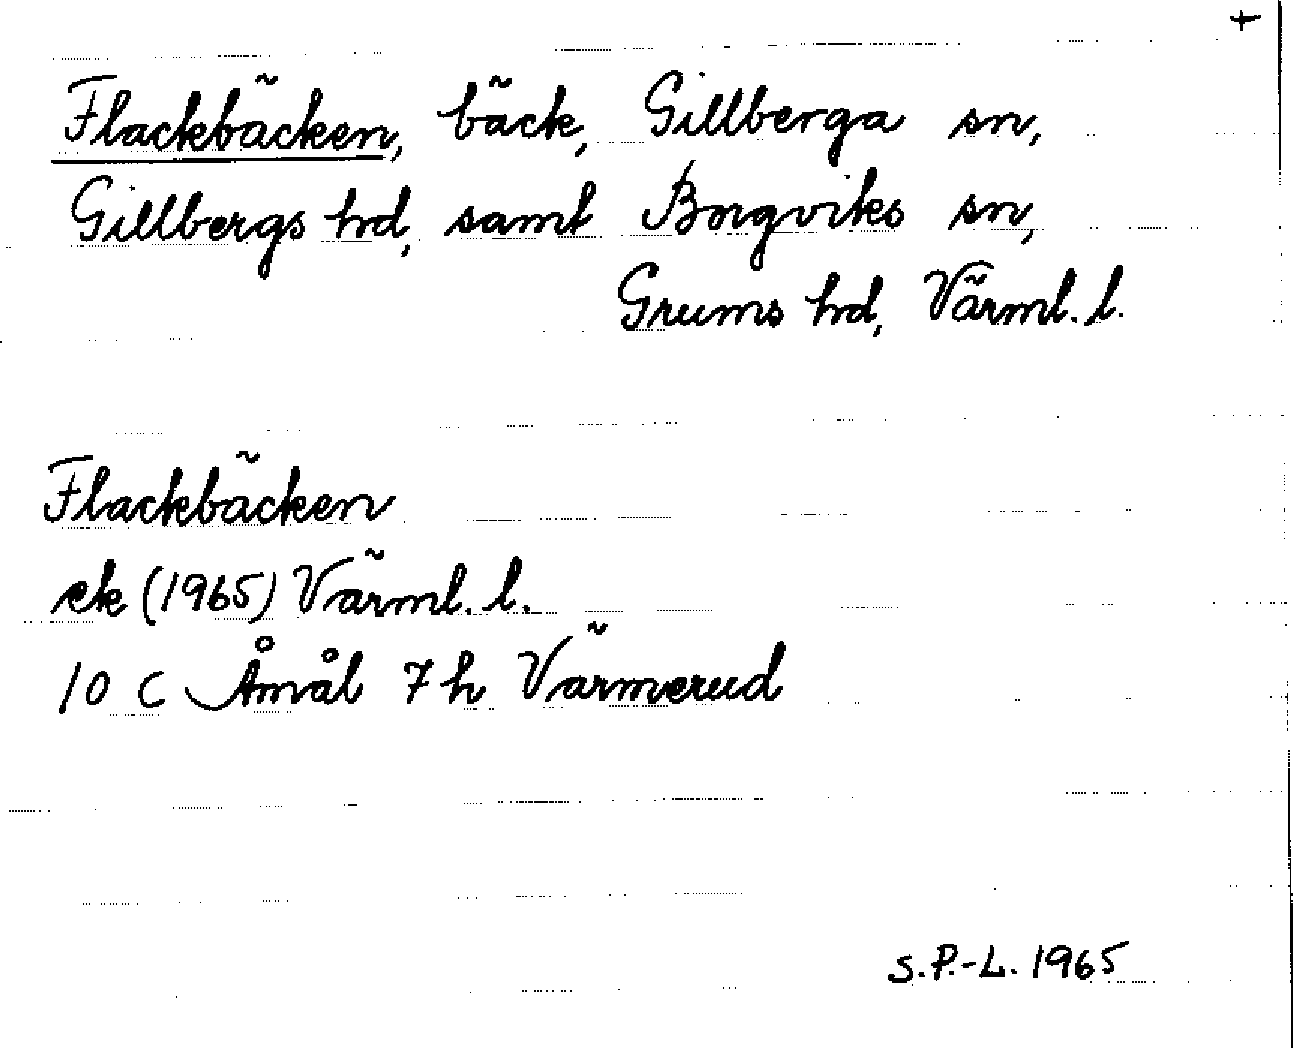 +
Flackbäcken, bäck, Gillberga sn,
Gillbergs hd, samt Borgviks sn,
Grums hd, Värml. l.
Flackbäcken
ek (1965) Värml. l.
10 C Åmål 7 h Värmerud
S.P.-L. 1965